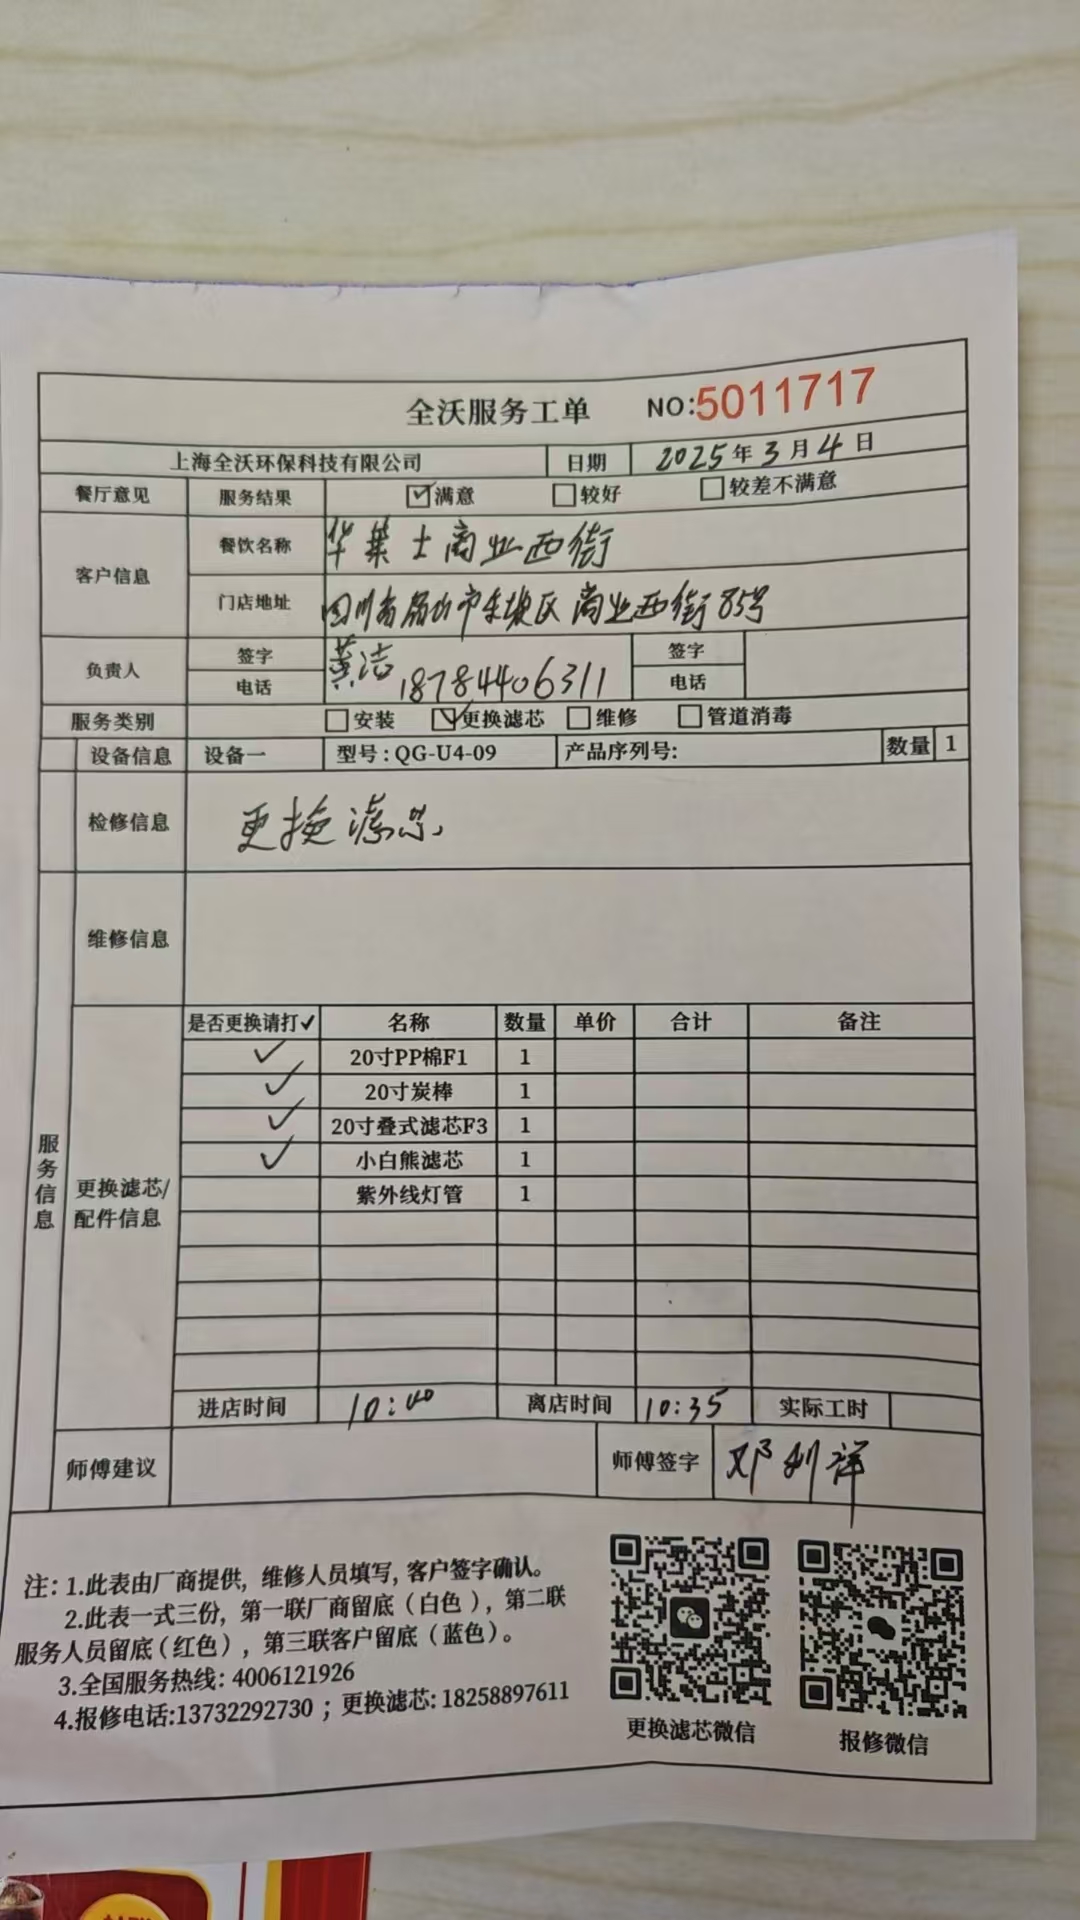 全沃服务工单 NO:5011717
上海全沃环保科技有限公司 日期 2025年3月4日
餐厅意见 服务结果 ☑满意 □较好 □较差不满意
客户信息 餐饮名称 华莱士商业西街
门店地址 四川省眉山市东坡区商业西街85号
负责人 签字 黄洁 签字
电话 18784406311 电话
服务类别 □安装 ☑更换滤芯 □维修 □管道消毒
设备信息 设备一 型号:QG-U4-09 产品序列号: 数量 1
检修信息 更换滤芯
服务信息
维修信息
更换滤芯/配件信息
是否更换请打✓ 名称 数量 单价 合计 备注
✓ 20寸PP棉F1 1
✓ 20寸炭棒 1
✓ 20寸叠式滤芯F3 1
✓ 小白熊滤芯 1
紫外线灯管 1
进店时间 10:40 离店时间 10:35 实际工时
师傅建议 师傅签字 邓利祥
注: 1.此表由厂商提供, 维修人员填写, 客户签字确认。
2.此表一式三份, 第一联厂商留底(白色), 第二联
服务人员留底(红色), 第三联客户留底(蓝色)。
3.全国服务热线: 4006121926
4.报修电话:13732292730 ; 更换滤芯: 18258897611
更换滤芯微信 报修微信